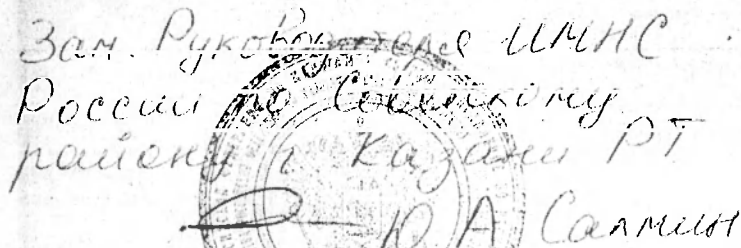 Зам. Руководителя ИМНС
России по Советскому
району г Казани РТ
Ю А Салмин